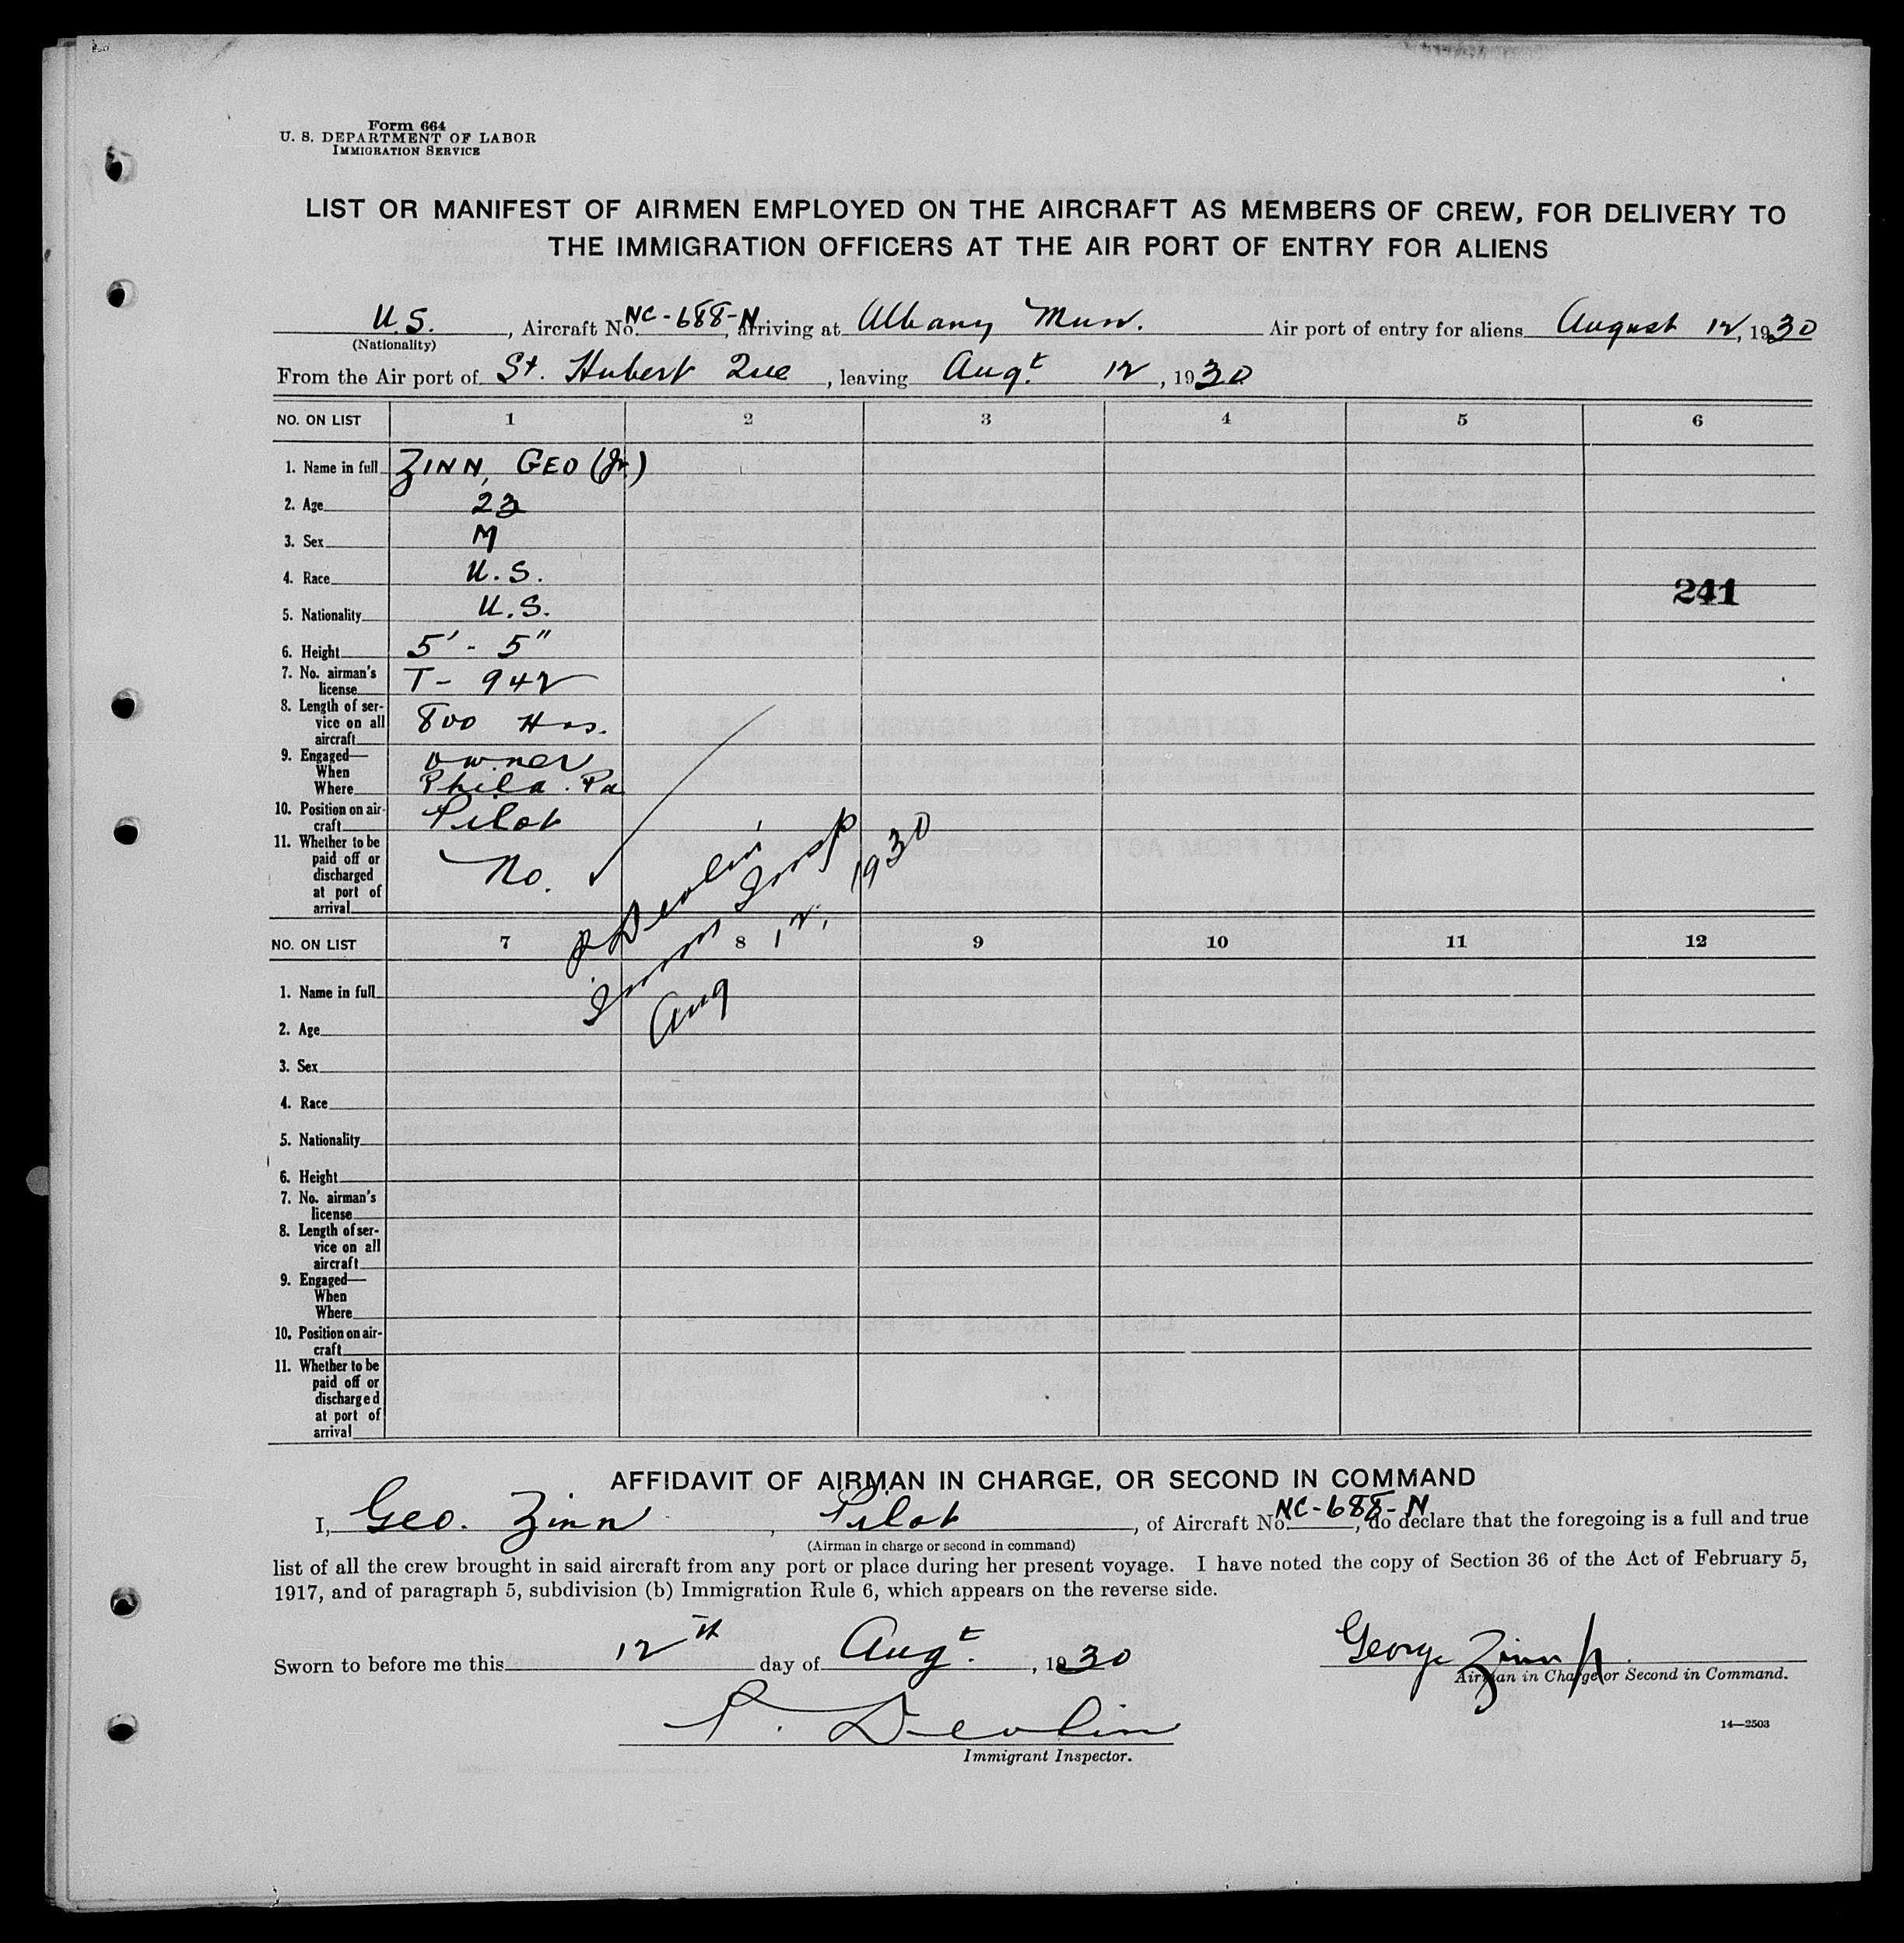 Form 664
U. S. DEPARTMENT OF LABOR
IMMIGRATION SERVICE
LIST OR MANIFEST OF AIRMEN EMPLOYED ON THE AIRCRAFT AS MEMBERS OF CREW, FOR DELIVERY TO
THE IMMIGRATION OFFICERS AT THE AIR PORT OF ENTRY FOR ALIENS
U.S., Aircraft No. NC-688-N, arriving at Albany Mun. Air port of entry for aliens August 12, 1930
(Nationality)
From the Air port of St. Hubert Que, leaving Augt. 12, 1930
NO. ON LIST 1 2 3 4 5 6
1. Name in full ZINN, GEO (Jr.)
2. Age 23
3. Sex M
4. Race U.S.
241
5. Nationality U.S.
6. Height 5' - 5"
7. No. airman's
license T- 942
8. Length of ser-
vice on all
aircraft 800 Hrs.
9. Engaged— owner
When
Where Phila. Pa
10. Position on air-
craft Pilot
11. Whether to be
paid off or
discharged
at port of
arrival No. ✓
P Devlin
Imm Insp
Aug 12, 1930
NO. ON LIST 7 8 9 10 11 12
1. Name in full
2. Age
3. Sex
4. Race
5. Nationality
6. Height
7. No. airman's
license
8. Length of ser-
vice on all
aircraft
9. Engaged—
When
Where
10. Position on air-
craft
11. Whether to be
paid off or
discharged
at port of
arrival
AFFIDAVIT OF AIRMAN IN CHARGE, OR SECOND IN COMMAND
I, Geo. Zinn, Pilot, of Aircraft No. NC-688-N, do declare that the foregoing is a full and true
(Airman in charge or second in command)
list of all the crew brought in said aircraft from any port or place during her present voyage. I have noted the copy of Section 36 of the Act of February 5,
1917, and of paragraph 5, subdivision (b) Immigration Rule 6, which appears on the reverse side.
Sworn to before me this 12th day of Augt., 1930
George Zinn Jr.
Airman in Charge or Second in Command.
P. Devlin
Immigrant Inspector.
14—2503